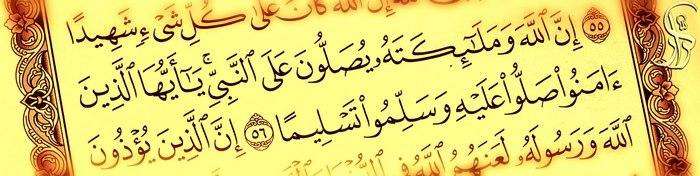 إِنَّ ٱللَّهَ كَانَ عَلَىٰ كُلِّ شَىْءٍ شَهِيدًا
۝٥٥ إِنَّ ٱللَّهَ وَمَلَـٰٓئِكَتَهُۥ يُصَلُّونَ عَلَى ٱلنَّبِىِّ ۚ يَـٰٓأَيُّهَا ٱلَّذِينَ
ءَامَنُوا۟ صَلُّوا۟ عَلَيْهِ وَسَلِّمُوا۟ تَسْلِيمًا ۝٥٦ إِنَّ ٱلَّذِينَ يُؤْذُونَ
ٱللَّهَ وَرَسُولَهُۥ لَعَنَهُمُ ٱللَّهُ فِى ٱلدُّنْيَا